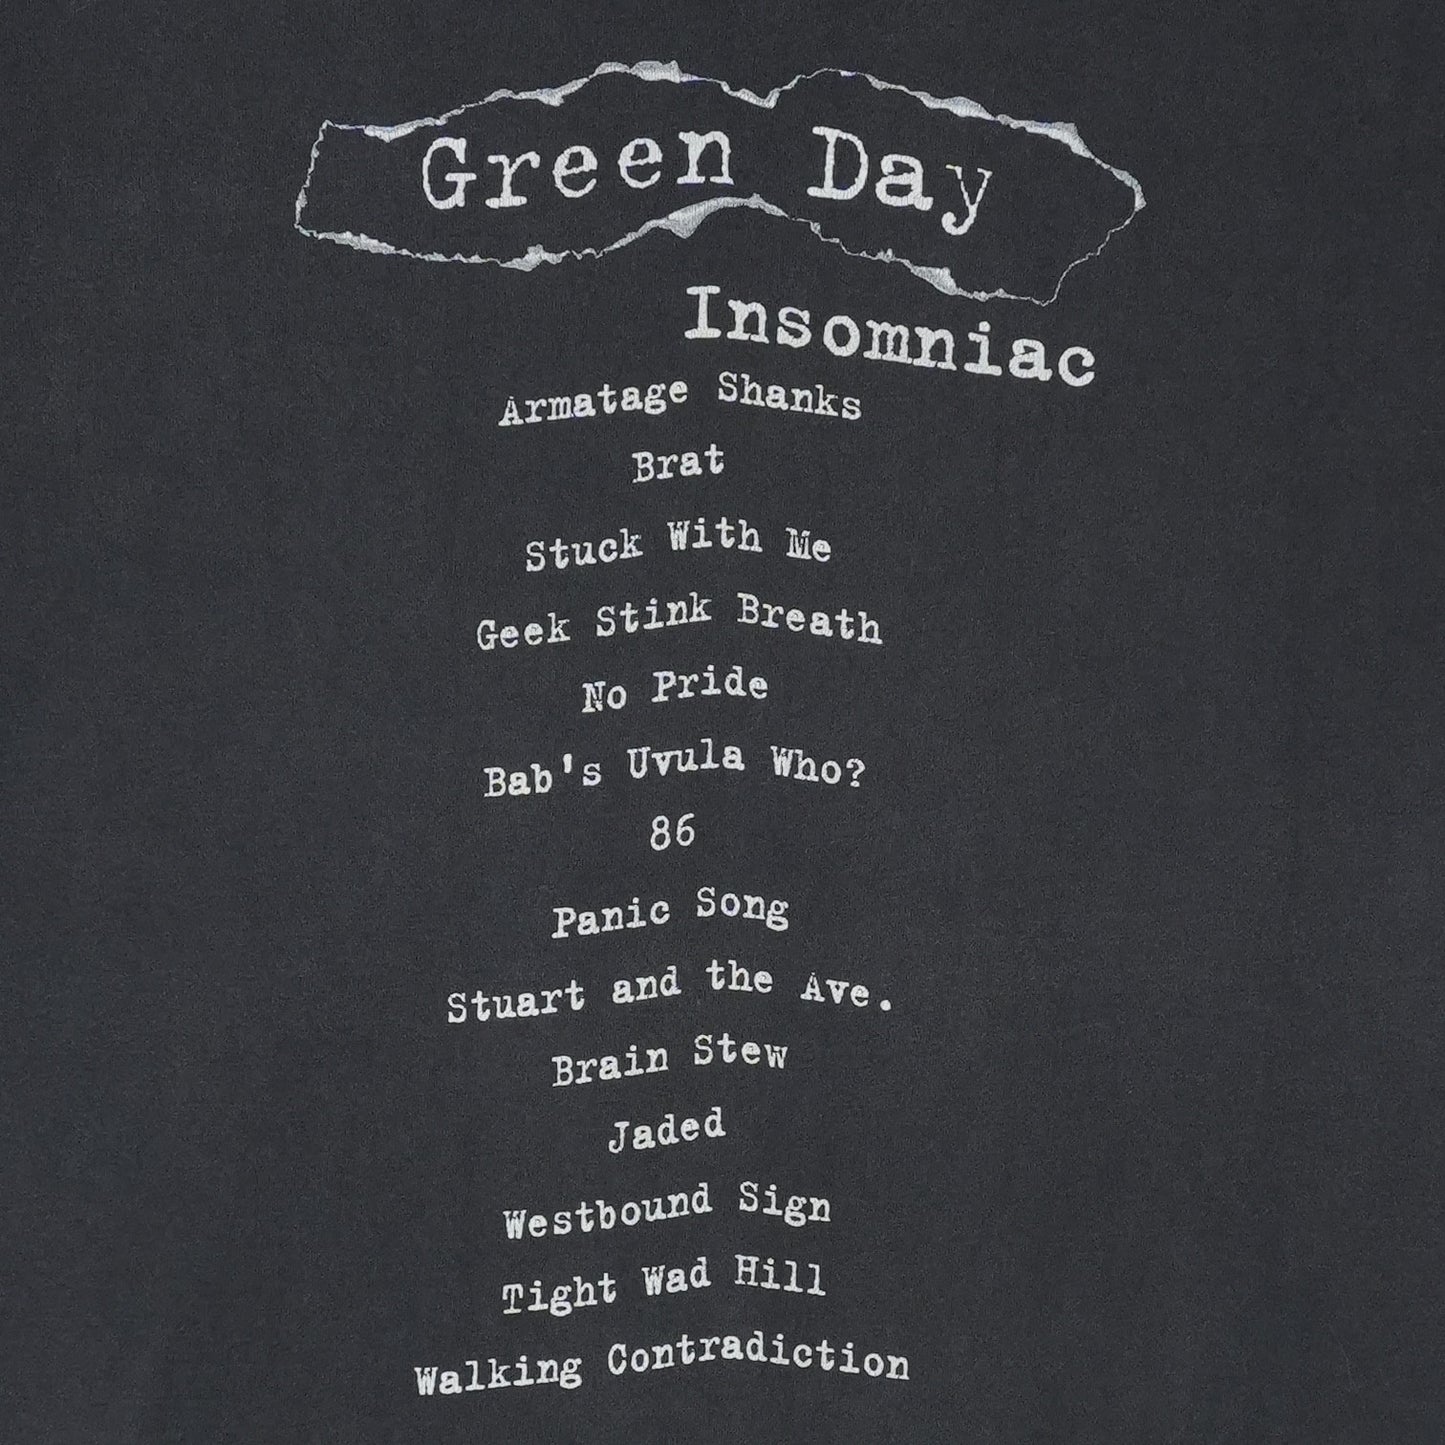 Green Day
Insomniac
Armatage Shanks
Brat
Stuck With Me
Geek Stink Breath
No Pride
Bab's Uvula Who?
86
Panic Song
Stuart and the Ave.
Brain Stew
Jaded
Westbound Sign
Tight Wad Hill
Walking Contradiction